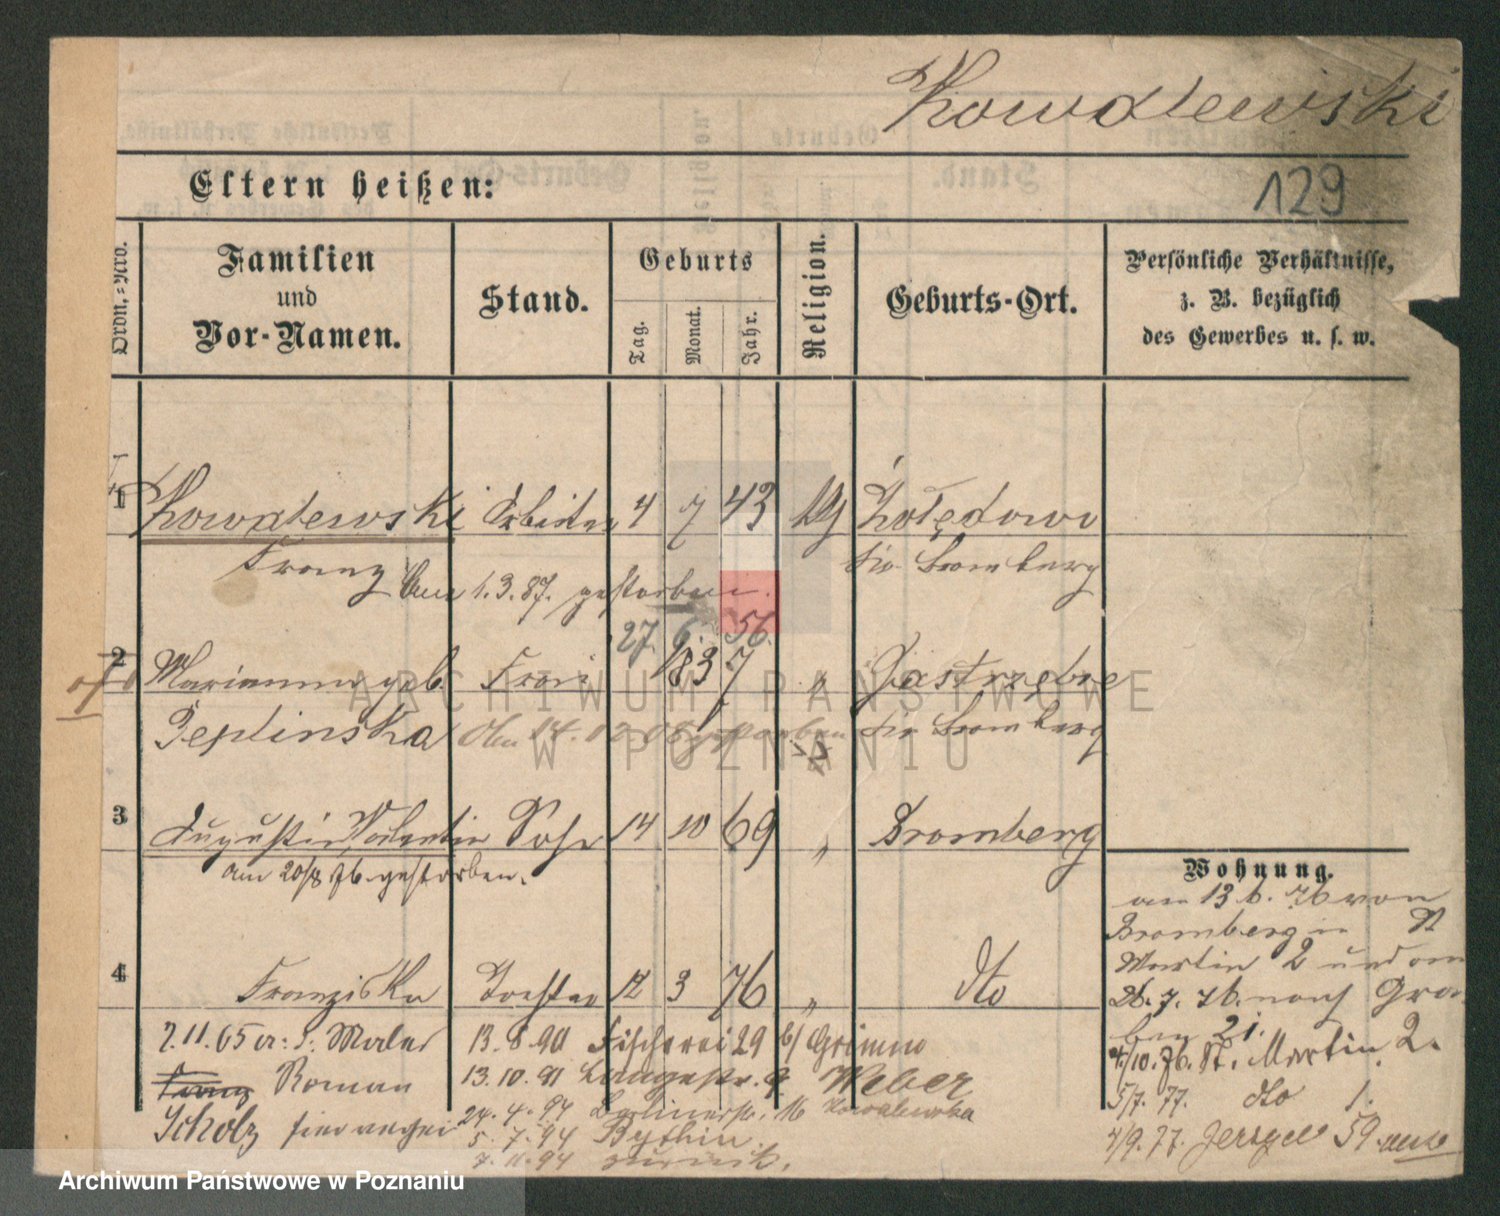 Kowalewski
Eltern heißen:
129
Ordn.-Nro.
Familien und Vor-Namen.
Stand.
Geburts
Tag.
Monat.
Jahr.
Religion.
Geburts-Ort.
Persönliche Verhältnisse, z. B. bezüglich des Gewerbes u. s. w.
1 Kowalewski Arbeiter 4 7 43 Żołędowo
Franz Kr. Bromberg
am 1.3.87. gestorben.
27. 6. 56.
2 Marianna geb. Frau 1837 " Jastrzębie
Peplinska Kr. Bromberg
3 Augustin, Valentin Sohn 14 10 69 " Bromberg
am 20/8 76 gestorben.
4 Franziska Tochter 12 3 76 " dto
Wohnung.
am 13 6. 76 von
Bromberg n St
Martin 2 und am
26. 7. 76. nach Gra
ben 21.
4/10. 76. St. Martin 2.
5/7. 77. dto 1.
4/9. 77. 59.
7.11.65 Maler 13.8.90 Fischerei 29 b/ Grimm
Franz Roman 13.10.91 Langestr. 9 Weber
Scholz 24.4.94 Berlinerstr. 16 Kowalewska
5.7.94 Bythin.
7.11.94 zurück.
ARCHIWUM PAŃSTWOWE
W POZNANIU
Archiwum Państwowe w Poznaniu